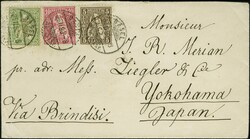 Monsieur
J. R. Merian
per adr. Mess. Ziegler & Co
Yokohama
Via Brindisi. Japan.